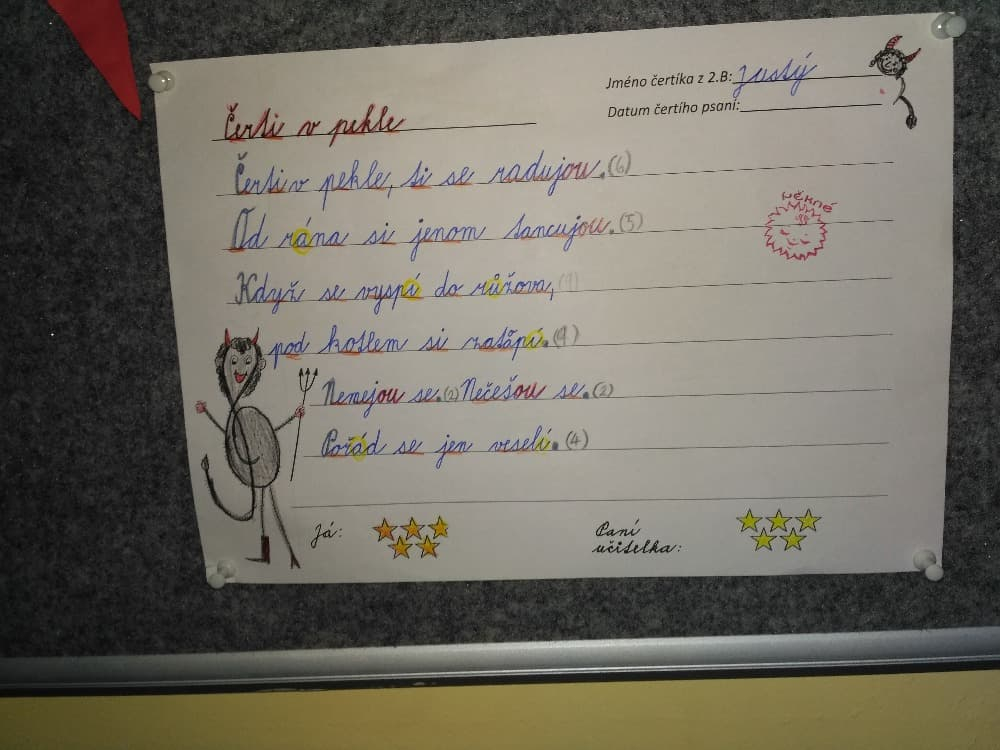 Jméno čertíka z 2.B: Justý
Datum čertího psaní:
Čerti v pekle
Čerti v pekle, ti se radujou. (6)
Od rána si jenom tancujou. (5)
Když se vyspí do růžova, (9)
pod kotlem si zatápí. (9)
Nemejou se. (2) Nečešou se. (2)
Pořád se jen veselí. (4)
PĚKNÉ
Já:
Paní
učitelka: